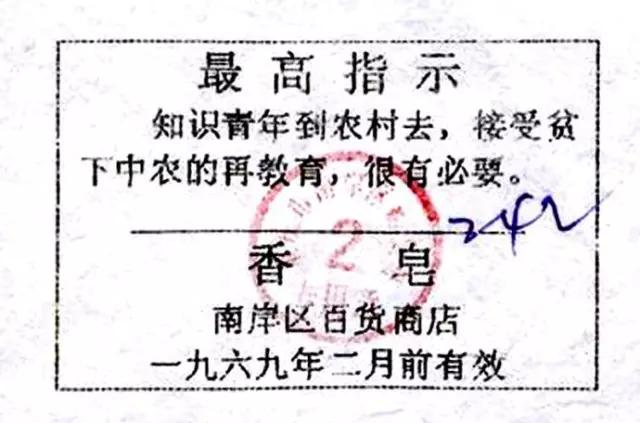 最高指示
知识青年到农村去，接受贫
下中农的再教育，很有必要。
242
香皂
2
南岸区百货商店
一九六九年二月前有效